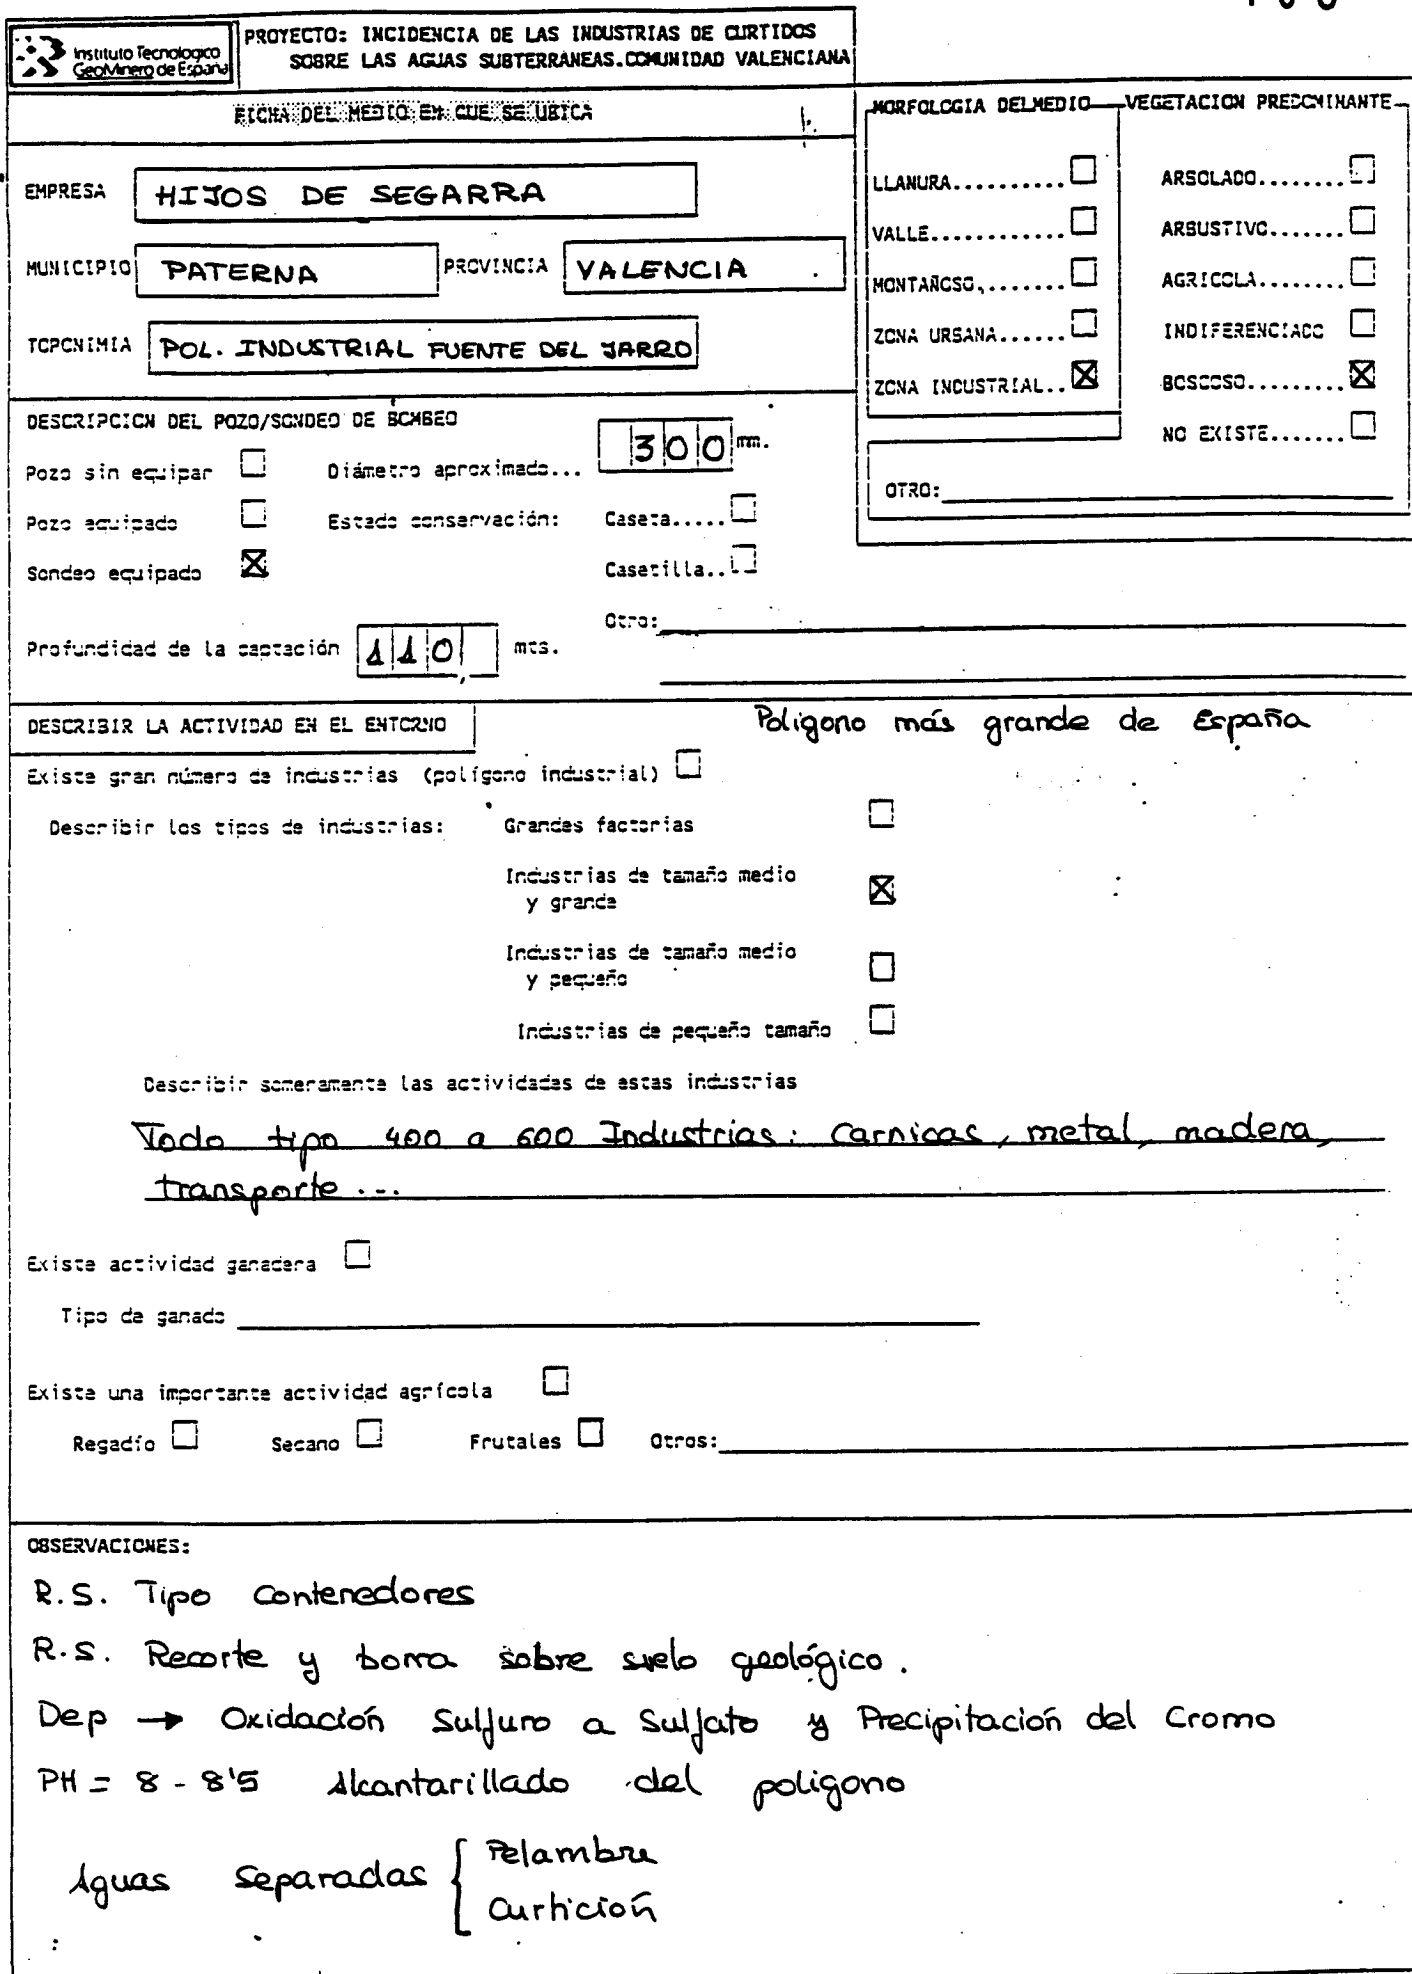 Instituto Tecnologico
GeoMinero de España
PROYECTO: INCIDENCIA DE LAS INDUSTRIAS DE CURTIDOS
SOBRE LAS AGUAS SUBTERRANEAS.COMUNIDAD VALENCIANA
FICHA DEL MEDIO EN QUE SE UBICA
EMPRESA HIJOS DE SEGARRA
MUNICIPIO PATERNA PROVINCIA VALENCIA
TOPONIMIA POL. INDUSTRIAL FUENTE DEL JARRO
MORFOLOGIA DEL MEDIO VEGETACION PREDOMINANTE
LLANURA.......... ☐ ARBOLADO........ ☐
VALLE............ ☐ ARBUSTIVO....... ☐
MONTAÑOSO........ ☐ AGRICOLA........ ☐
ZONA URBANA...... ☐ INDIFERENCIADO ☐
ZONA INDUSTRIAL.. ☒ BOSCOSO......... ☒
NO EXISTE....... ☐
OTRO:
DESCRIPCION DEL POZO/SONDEO DE BOMBEO
Pozo sin equipar ☐ Diámetro aproximado... 300 mm.
Pozo equipado ☐ Estado conservación: Caseta..... ☐
Sondeo equipado ☒ Casetilla.. ☐
Otro:
Profundidad de la captación 110, mts.
DESCRIBIR LA ACTIVIDAD EN EL ENTORNO Poligono más grande de España
Existe gran número de industrias (polígono industrial) ☐
Describir los tipos de industrias: Grandes factorias ☐
Industrias de tamaño medio
y grande ☒
Industrias de tamaño medio
y pequeño ☐
Industrias de pequeño tamaño ☐
Describir someramente las actividades de estas industrias
Todo tipo 400 a 600 Industrias: Carnicas, metal, madera,
transporte...
Existe actividad ganadera ☐
Tipo de ganado
Existe una importante actividad agrícola ☐
Regadío ☐ Secano ☐ Frutales ☐ Otros:
OBSERVACIONES:
R.S. Tipo Contenedores
R.S. Recorte y borra sobre suelo geológico.
Dep → Oxidación Sulfuro a Sulfato y Precipitación del Cromo
PH = 8 - 8'5 Alcantarillado del poligono
Aguas Separadas { Pelambre
Curtición